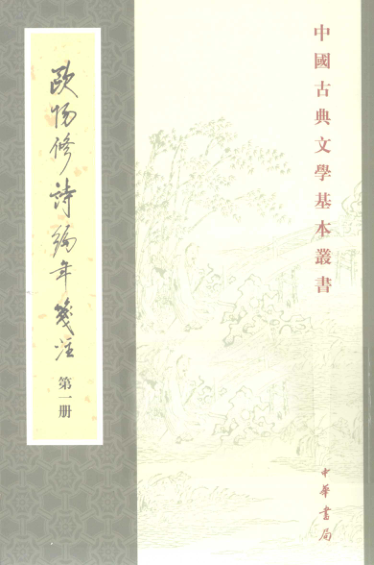 中國古典文學基本叢書
歐陽修詩編年箋注
第一册
中華書局